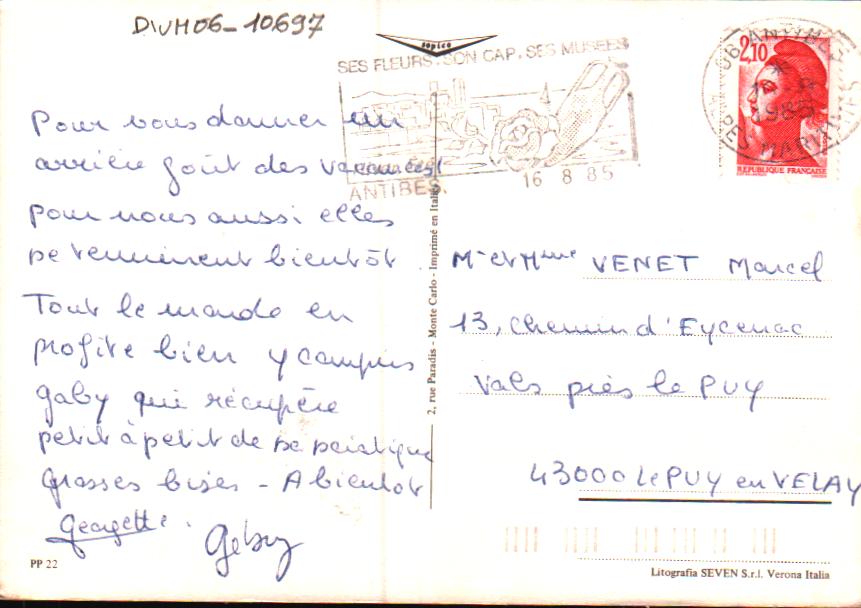 DIVH06-10697
sopico
SES FLEURS. SON CAP. SES MUSEES
ANTIBES.
16 8 85
06 ANTIBES
1985
2,10
REPUBLIQUE FRANÇAISE
Pour vous donner un
arrière goût des vacances!
pour nous aussi elles
se terminent bientôt.
Tout le monde en
profite bien y compris
gaby qui récupère
petit à petit de sa sciatique
grosses bises - A bientôt
Georgette.
Gaby
PP 22
2, rue Paradis - Monte Carlo - Imprimé en Italie
Mr et Mme VENET Marcel
13, chemin d'Eycenac
Vals près le PUY
43000 le PUY en VELAY
Litografia SEVEN S.r.l. Verona Italia